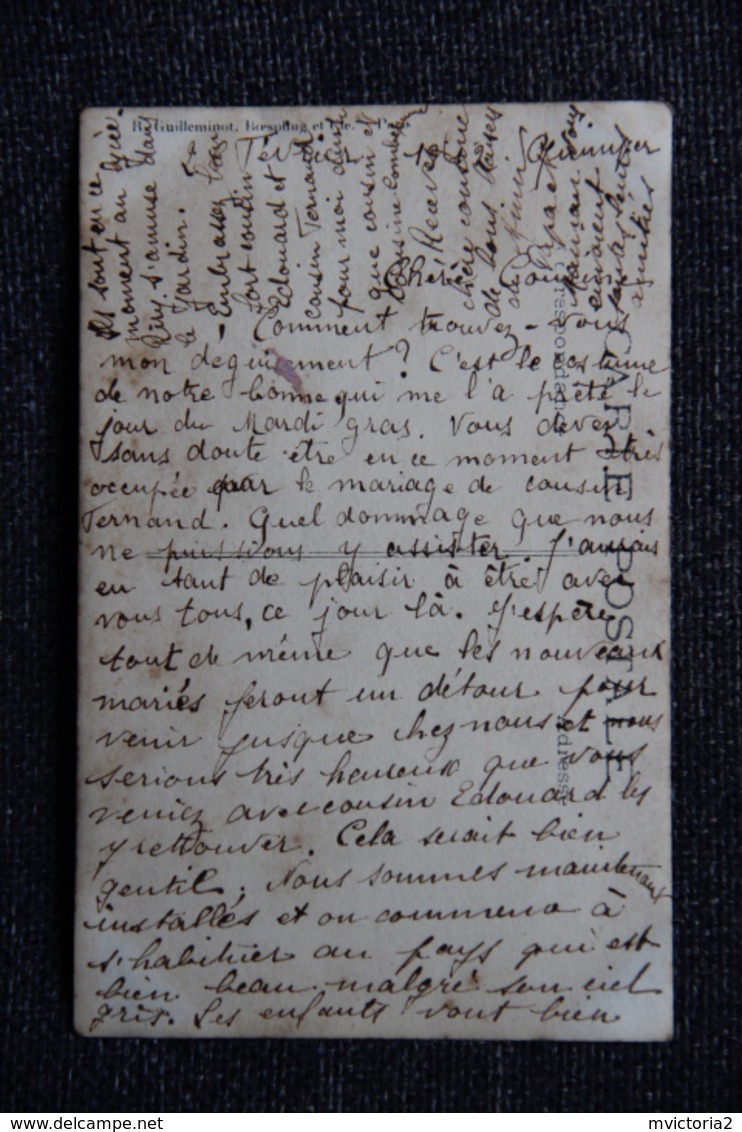 R. Guilleminot, Bœspflug et Cie. - Paris
CARTE POSTALE
Correspondance
Adresse
Quimper
Chère
Comment trouvez-vous
mon déguisement? C'est le costume
de notre bonne qui me l'a prêté le
jour du Mardi gras. Vous devez
sans doute être en ce moment très
occupée par le mariage de cousin
Fernand. Quel dommage que nous
ne puissions y assister. J'aurais
eu tant de plaisir à être avec
vous tous, ce jour là. J'espère
tout de même que les nouveaux
mariés feront un détour pour
venir jusque chez nous et nous
serions très heureux que vous
veniez avec cousin Edouard les
y retrouver. Cela serait bien
gentil; Nous sommes maintenant
installés et on commence à
s'habituer au pays qui est
bien beau malgré son ciel
gris. Les enfants vont bien
Ils sont en ce
moment au lycée.
s'amuse dans
le jardin.
Embrassez bien
fort cousin
Edouard et
cousin Fernand
pour moi ainsi
que cousin et
cousine
Recevez
chère cousine
de bons baisers
de
Papa et
Maman vous
envoient
toutes leurs
amitiés
mvictoria2